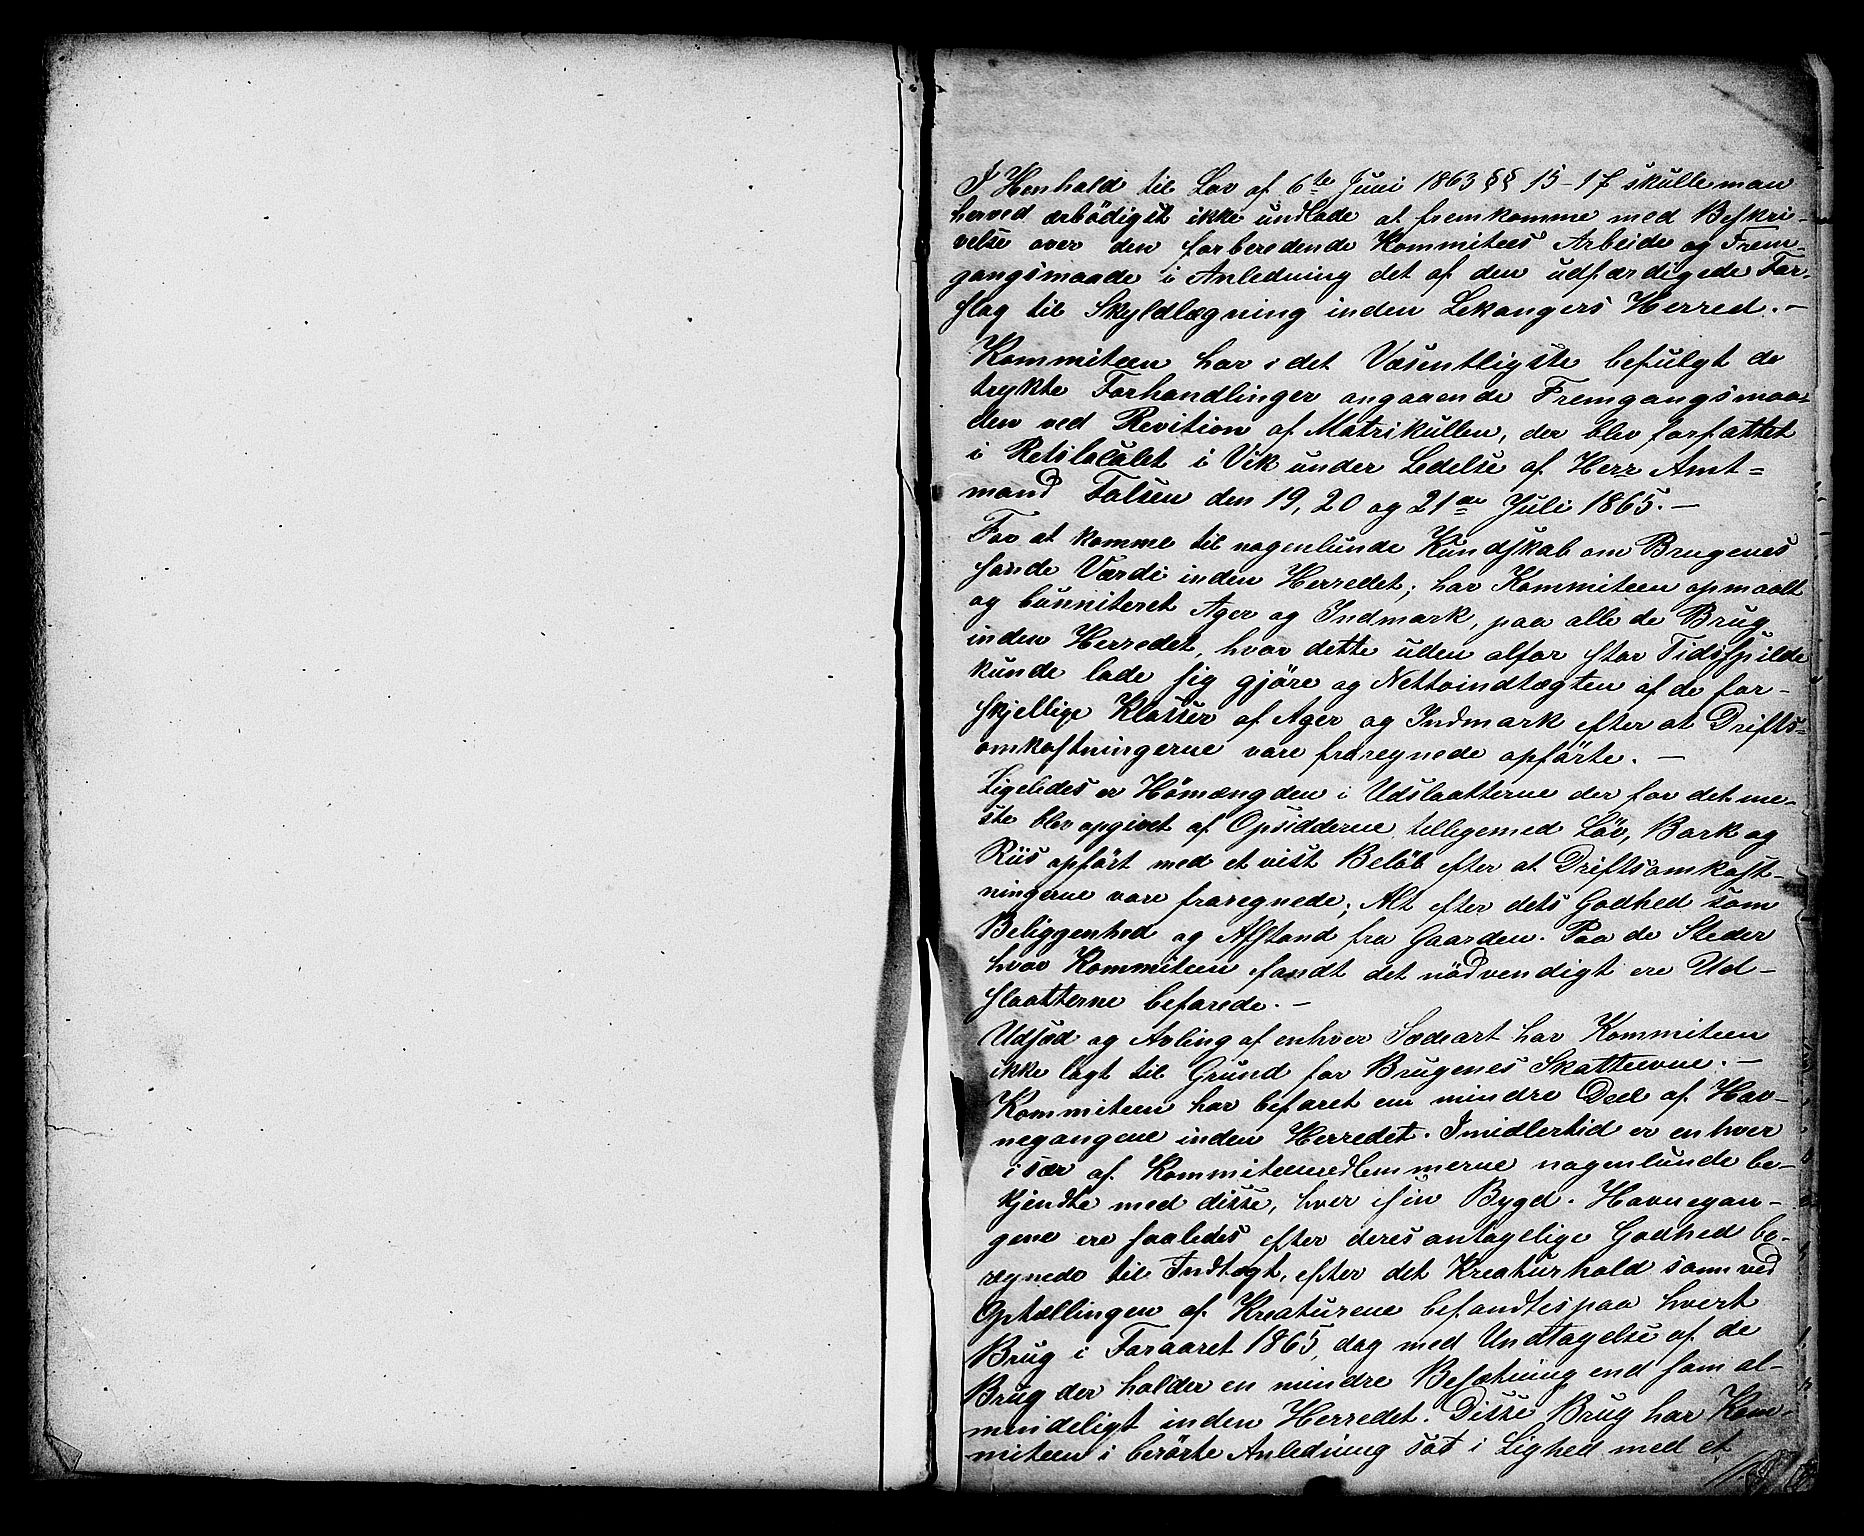 I Henhold til Lov af 6te Juni 1863 §§ 15-17 skulle man
herved ærbödigst ikke undlade at fremkomme med Beskri-
velse over den forberedende Kommitees Arbeide og Frem-
gangsmaade i Anledning det af den udfærdigede For-
slag til Skyldlægning inden Lekangers Herred. -
Kommiteen har i det Væsentligste befulgt de
trykte Forhandlinger angaaende Fremgangsmaa-
den ved Revition af Matrikullen, der blev forfattet
i Retslocalet i Vik under Ledelse af Herr Amt=
mand Falsen den 19, 20 og 21de Juli 1865. -
For at komme til nogenlunde Kundskab om Brugenes
sande Værdi inden Herredet; har Kommiteen opmaalt
og bonniteret Ager og Indmark, paa alle de Brug
inden Herredet, hvor dette uden alfor stor Tidsspilde
kunde lade sig gjöre og Nettoindtægten af de for-
skjellige Klasser af Ager og Indmark efter at Drifts-
omkostningerne vare fraregnede opförte. -
Ligeledes er Hömængden i Udslaatterne der for det me-
ste blev opgivet af Opsidderne tilligemed Löv, Bark og
Riis opfört med et vist Belöb efter at Driftsomkost-
ningerne vare fraregnede; Alt efter dets Godhed som
Beliggenhed og Afstand fra Gaarden. Paa de Steder
hvor Kommiteen fandt det nödvendigt ere Ud-
slaatterne befarede. -
Udsæd og Avling af enhver Sædeart har Kommiteen
ikke lagt til Grund for Brugenes Skatteevne. -
Kommiteen har befaret en mindre Deel af Hav-
negangene inden Herredet. Imidlertid er enhver
i sær af Kommiteemedlemmerne nogenlunde be-
kjendte med disse, hver sin Bygd. Havnegan-
gene ere saaledes efter deres antagelige Godhed be-
regnede til Indtægt, efter det Kreaturhold som ved
Optællingen af Kreaturene befandtes paa hvert
Brug i Foraaret 1865, dog med Undtagelse af de
Brug der holder en mindre Besætning end som al-
mindeligt inden Herredet. Disse Brug har Kom-
miteen i berörte Anledning sat i Lighed med et